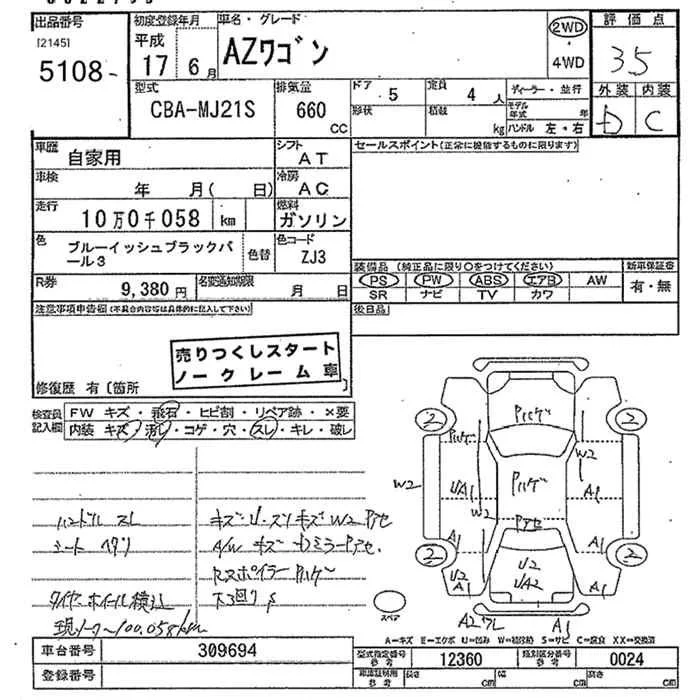 出品番号
[2145]
5108
初度登録年月
平成
17年 6月
車名・グレード
AZワゴン
2WD
・
4WD
評価点
3.5
外装 内装
D C
型式
CBA-MJ21S
排気量
660
CC
ドア
5
定員
4人
形状
積載
kg
ディーラー・並行
モデル年式 年
ハンドル 左・右
車歴
自家用
シフト
AT
車検
年 月( 日)
冷房
AC
走行
10万0千058 km
燃料
ガソリン
色
ブルーイッシュブラックパ
ール3
色替
色コード
ZJ3
R券
9,380円
名変通知期限
月 日
セールスポイント(正常に機能するものに限ります)
装備品 (純正品に限り○をつけてください)
PS PW ABS エアB AW
SR ナビ TV カワ
新車保証書
有・無
後日品
注意事項申告欄(不具合内容等は具体的に記入して下さい)
売りつくしスタート
ノークレーム車
修復歴 有 [箇所
検査員
記入欄
FW キズ・飛石・ヒビ割・リペア跡・×要
内装 キズ・汚レ・コゲ・穴・スレ・キレ・破レ
ハンドル スレ
シート ヘタリ
タイヤ・ホイール積込
現メーター100,058km
キズ・U・スリキズ W2 Pアセ
A/W キズ ドミラーPアセ.
Rスポイラー Pハゲ
下回りS
2
2
2
2
Pハゲ
Pハゲ
Pハゲ
Pアセ
W2
W2
W2
UA1
A1
A1
A1
U2
A1
U2
UA2
A1
A2ワレ
A1
スペア
A=キズ E=エクボ U=凹み W=補修跡 S=サビ C=腐食 XX=交換済
車台番号
309694
登録番号
型式指定番号
参考
12360
類別区分番号
参考
0024
車庫証明用
参考
長さ cm
幅 cm
高さ cm